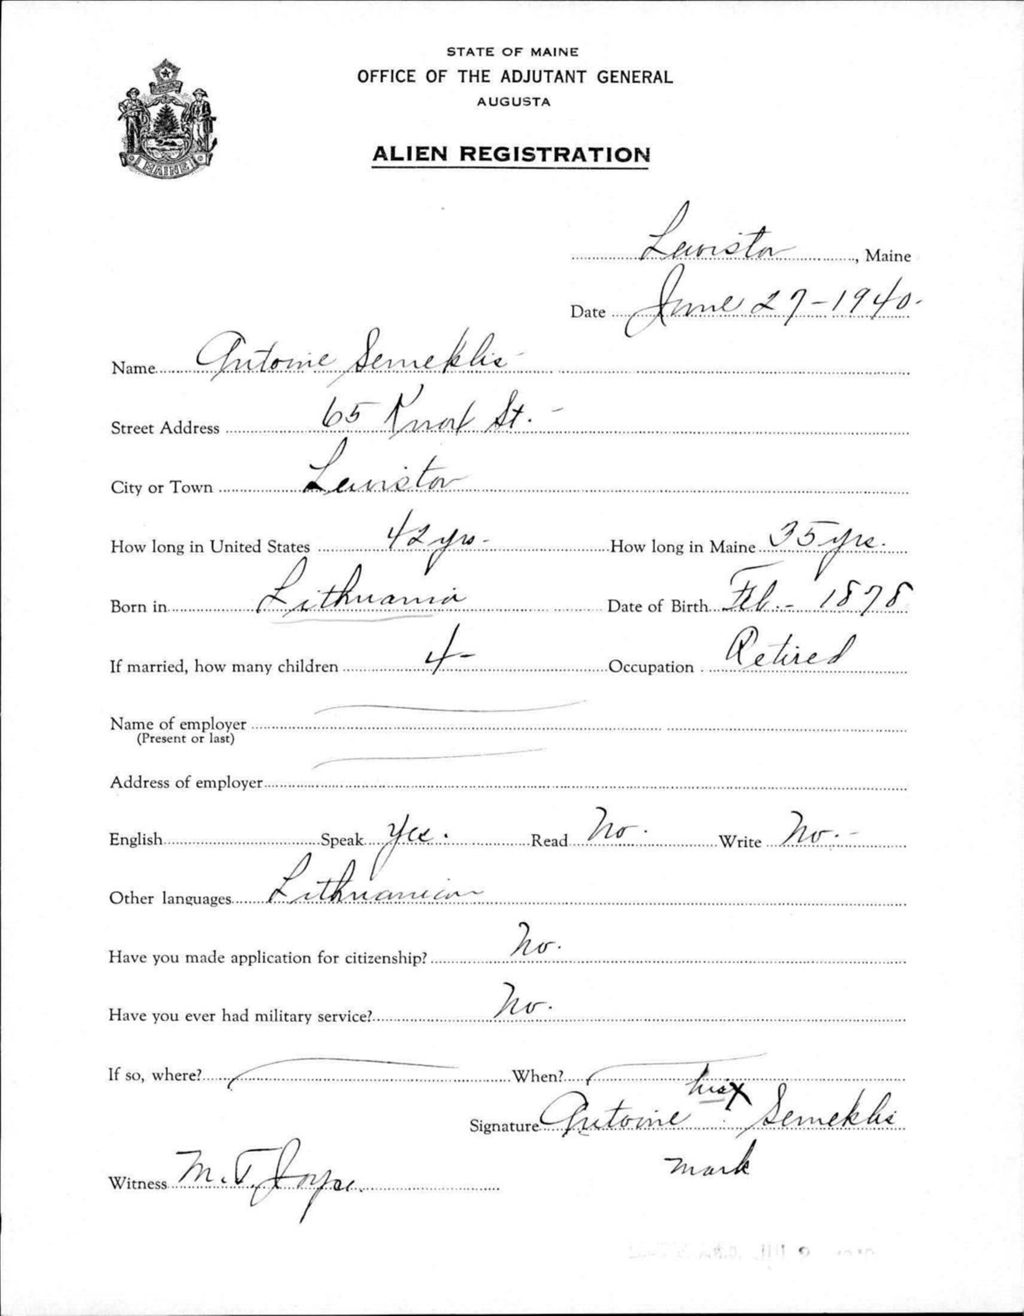 STATE OF MAINE
OFFICE OF THE ADJUTANT GENERAL
AUGUSTA
ALIEN REGISTRATION
MAINE
Lewiston, Maine
Date June 27-1940.
Name Antoine Semeklis
Street Address 65 Knox St.-
City or Town Lewiston
How long in United States 42 yrs- How long in Maine 35 yrs.
Born in Lithuania Date of Birth Feb.- 1878
If married, how many children 4- Occupation Retired
Name of employer
(Present or last)
Address of employer
English Speak Yes. Read No. Write No.-
Other languages Lithuanian
Have you made application for citizenship? No.
Have you ever had military service? No.
If so, where? When?
his X
Signature Antoine Semeklis
mark
Witness M.T. Joyce.